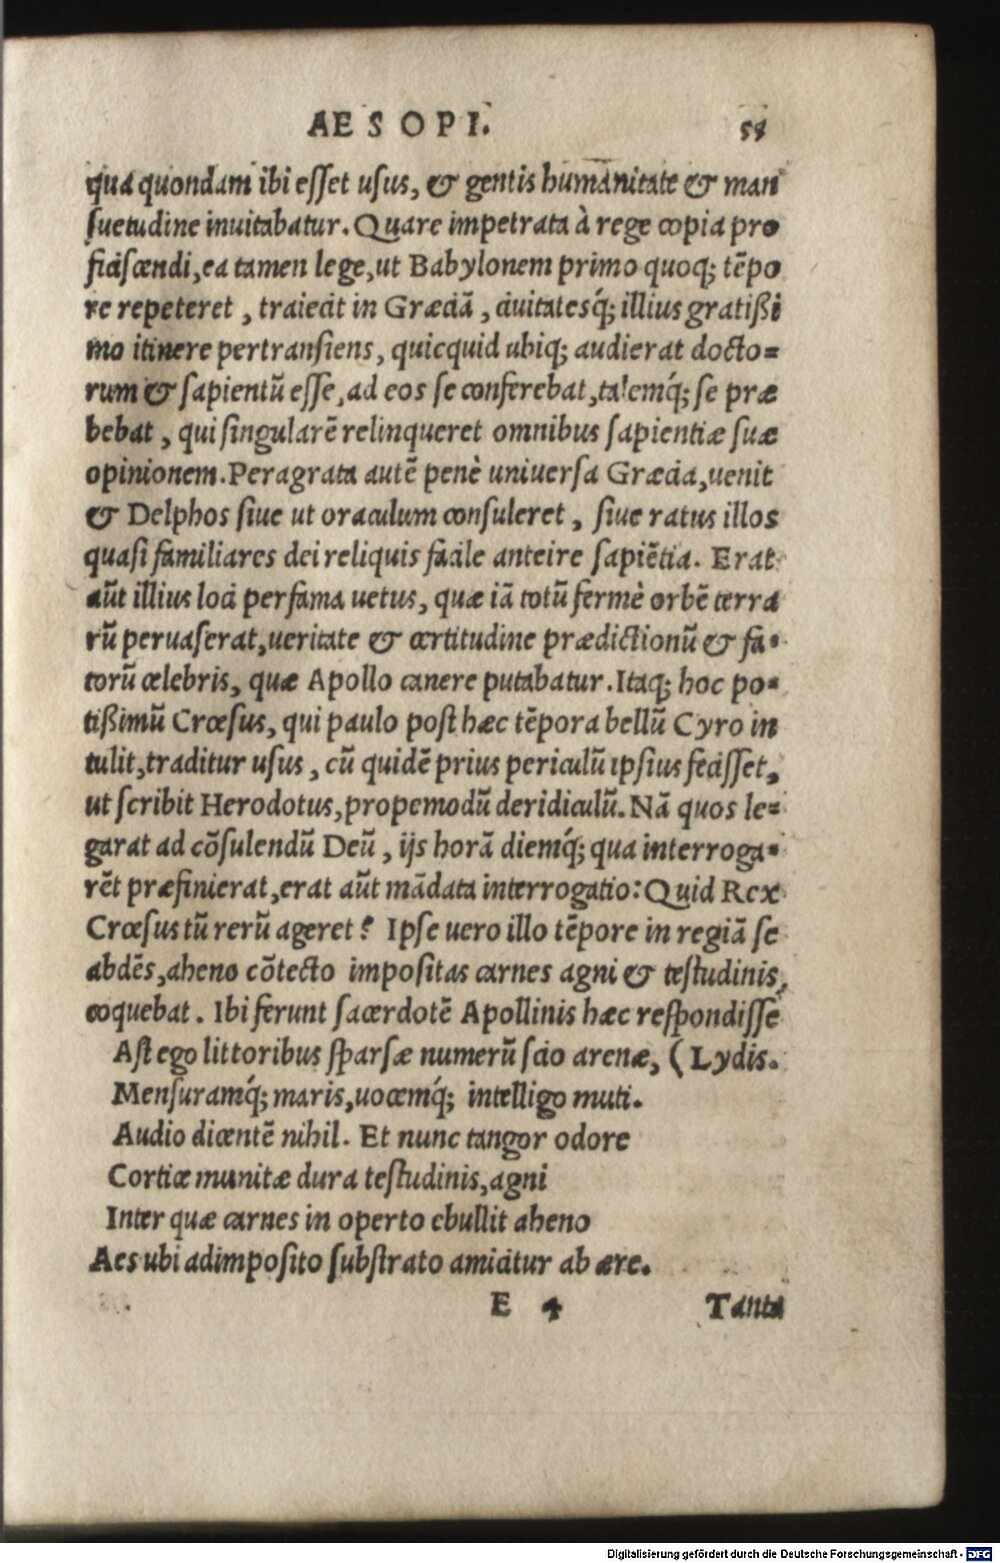 AESOPI. 55
qua quondam ibi esset usus, & gentis humanitate & man
suetudine inuitabatur. Quare impetrata à rege copia pro
ficiscendi, ea tamen lege, ut Babylonem primo quoq; tẽpo
re repeteret, traiecit in Græciã, ciuitatesq́; illius gratißi
mo itinere pertransiens, quicquid ubiq; audierat docto=
rum & sapientũ esse, ad eos se conferebat, talemq́; se præ
bebat, qui singularẽ relinqueret omnibus sapientiæ suæ
opinionem. Peragrata autẽ penè uniuersa Græcia, uenit
& Delphos siue ut oraculum consuleret, siue ratus illos
quasi familiares dei reliquis facile anteire sapiẽtia. Erat
aũt illius loci perfama uetus, quæ iã totũ fermè orbẽ terra
rũ peruaserat, ueritate & certitudine prædictionũ & fa=
torũ celebris, quæ Apollo canere putabatur. Itaq; hoc po=
tißimũ Crœsus, qui paulo post hæc tẽpora bellũ Cyro in
tulit, traditur usus, cũ quidẽ prius periculũ ipsius fecisset,
ut scribit Herodotus, propemodũ deridiculũ. Nã quos le=
garat ad cõsulendũ Deũ, ijs horã diemq́; qua interroga=
rẽt præfinierat, erat aũt mãdata interrogatio: Quid Rex
Crœsus tũ rerũ ageret? Ipse uero illo tẽpore in regiã se
abdẽs, aheno cõtecto impositas carnes agni & testudinis,
coquebat. Ibi ferunt sacerdotẽ Apollinis hæc respondisse
Ast ego littoribus sparsæ numerũ scio arenæ, (Lydis.
Mensuramq́; maris, uocemq́; intelligo muti.
Audio dicentẽ nihil. Et nunc tangor odore
Corticæ munitæ dura testudinis, agni
Inter quæ carnes in operto ebullit aheno
Aes ubi adimposito substrato amicitur ab ære.
E 4 Tanta
Digitalisierung gefördert durch die Deutsche Forschungsgemeinschaft - DFG